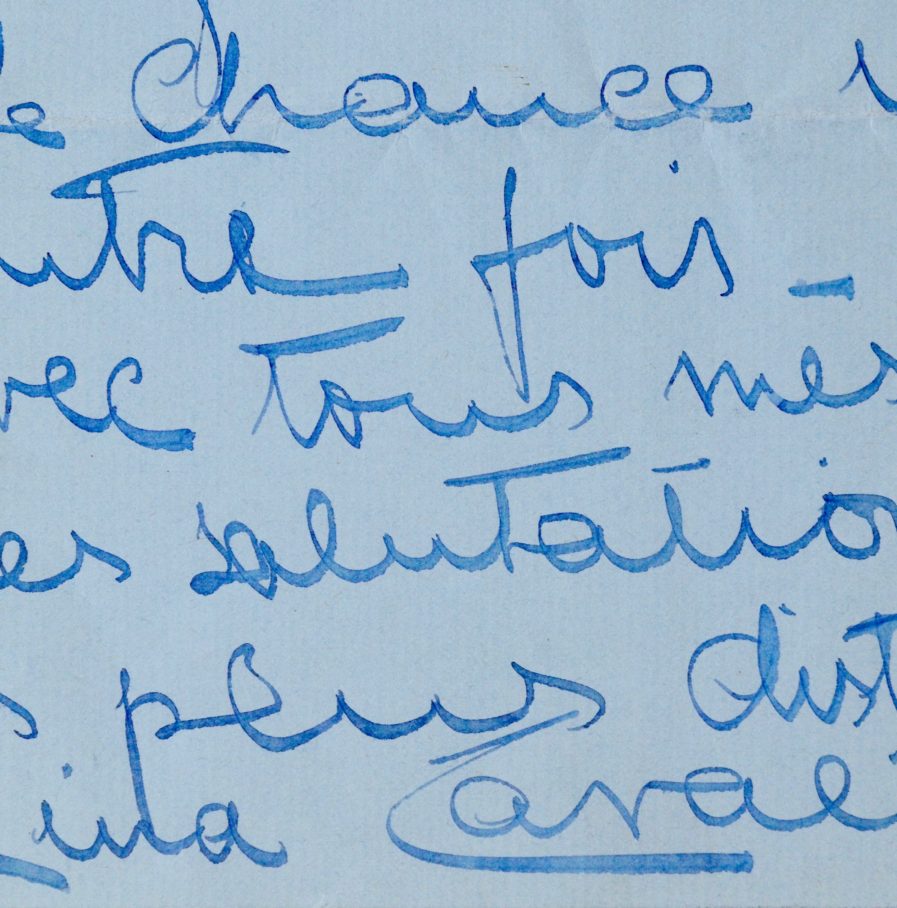 de chance u
utre fois -
vec tous mes
es salutation
s plus dist
Lina Cavali